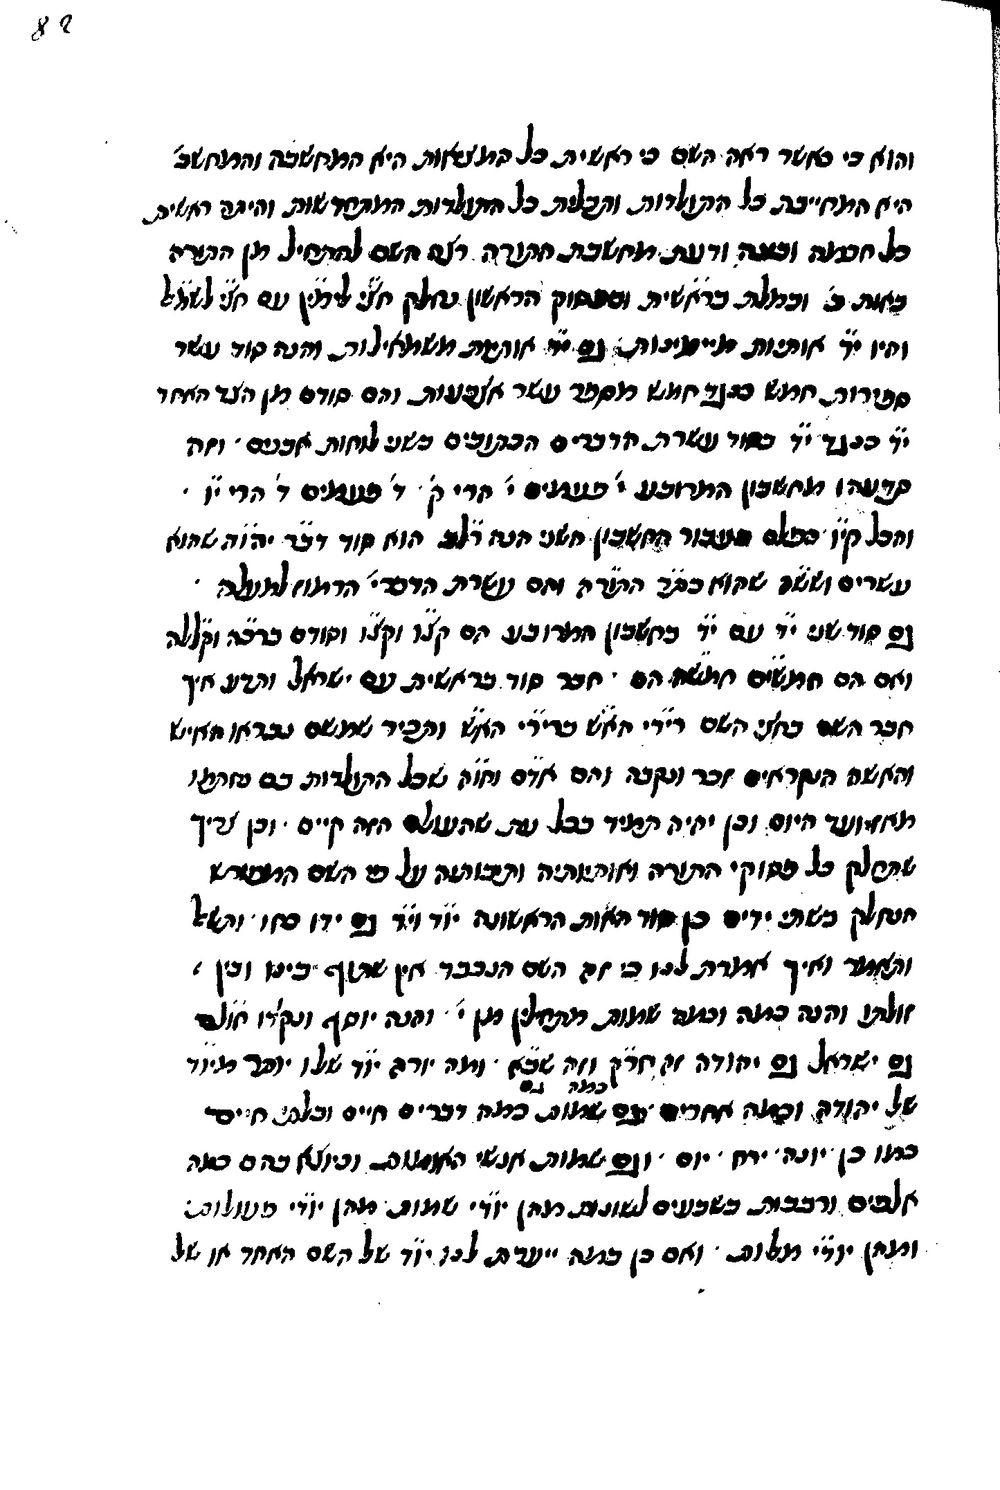 82
והוא כי כאשר ראה השם כי ראשית כל המצאות היא המחשבה והמחשב׳
היא המחייבת כל התולדות ותכלית כל התולדות המתחדשות והיתה ראשית
כל חכמה ודעת מחשבת התורה רצה השם להתחיל מן התורה
באות ב׳ ובמלת בראשית ופסוק הראשון נחלק חצי לימין עם חצי לשמאל
והיו י״ד אותיות מיימינות גם י״ד אותיות משמאילות והנה סוד עשר
ספירות חמש כנגד חמש מספר עשר אצבעות והם סודם מן הצד האחד
י״ד כנגד י״ד כסוד עשרת הדברים הכתובים בשני לוחות אבנים · וזה
מחשבון המרובע י׳ פעמים י׳ הרי ק׳ · ד׳ פעמים ד׳ הרי י״ו ·
והכל קי״ו בעבור החשבון השני הנה הוא סוד דבר יהוה שהוא
עשרים וששה שהוא כתר התורה והם עשרת הדברי׳ הרמוז למעלה ·
גם סוד שני י״ד עם י״ד בחשבון המרובע הם קצ״ו וקצ״ו וסודם ברכה וקללה
ואם הם חמשים חמשה הם · חבר סוד בראשית עם ישראל ותדע איך
חבר השם בחצי השם רי״רי האש ברי״רי האש ותכיר שמשם נבראו האיש
והאשה הנקראים זכר ונקבה והם אדם וחוה שכל התולדות בם
מאז ועד היום וכן יהיה תמיד בכל עת שהעולם הזה קיים · וכן צריך
שתחלק כל פסוקי התורה ואותיותיה ותיבותיה על פי השם המפורש
הנחלק בשתי ידים כן סוד האות הראשונה יו״ד וי״ד גם ידו
ותאמר ואיך אמרת לנו כי זה השם הנכבד אין שתוף בינו ובין
זולתו והנה כמה וכמה שמות מתחילין מן י׳ · והנה יוסף ונקדו חולם
גם ישראל גם יהודה זה חרק וזה שבא · ומה יורה יו״ד שלו יותר מיו״ד
של יהודה וכמה אחרים גם כמה שמות כמה דברים חיים ובלתי חיים
כמו כן יונה · ירח · יום · וגם שמות אנשי האומות וכיוצא בהם כמה
אלפים ורבבות בשבעים לשונות מהן יו״די שמות מהן יו״די פעולות
ומהן יו״די מלות · ואם כן במה ייערת לנו יו״ד של השם האחד או של